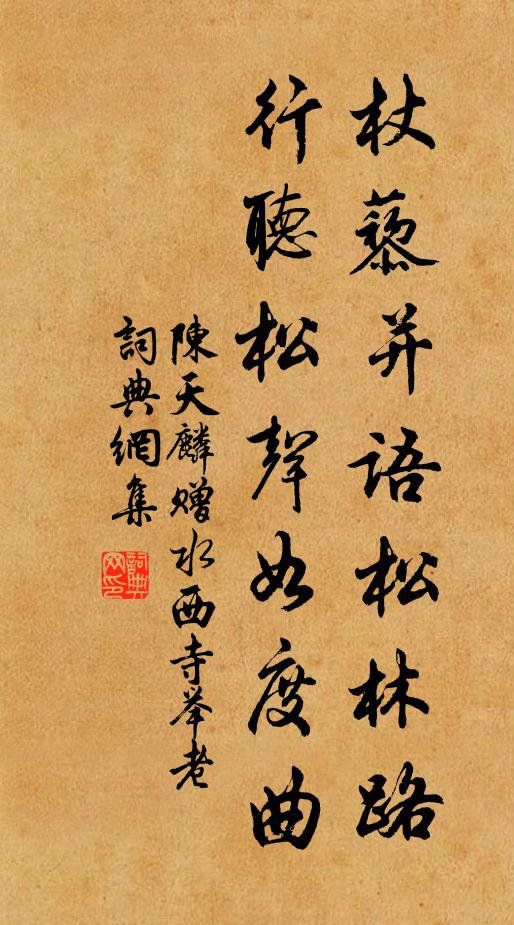 杖藜并语松林路
行聽松聲如度曲
陳天麟贈水西寺举老
詞典網集
詞典网印